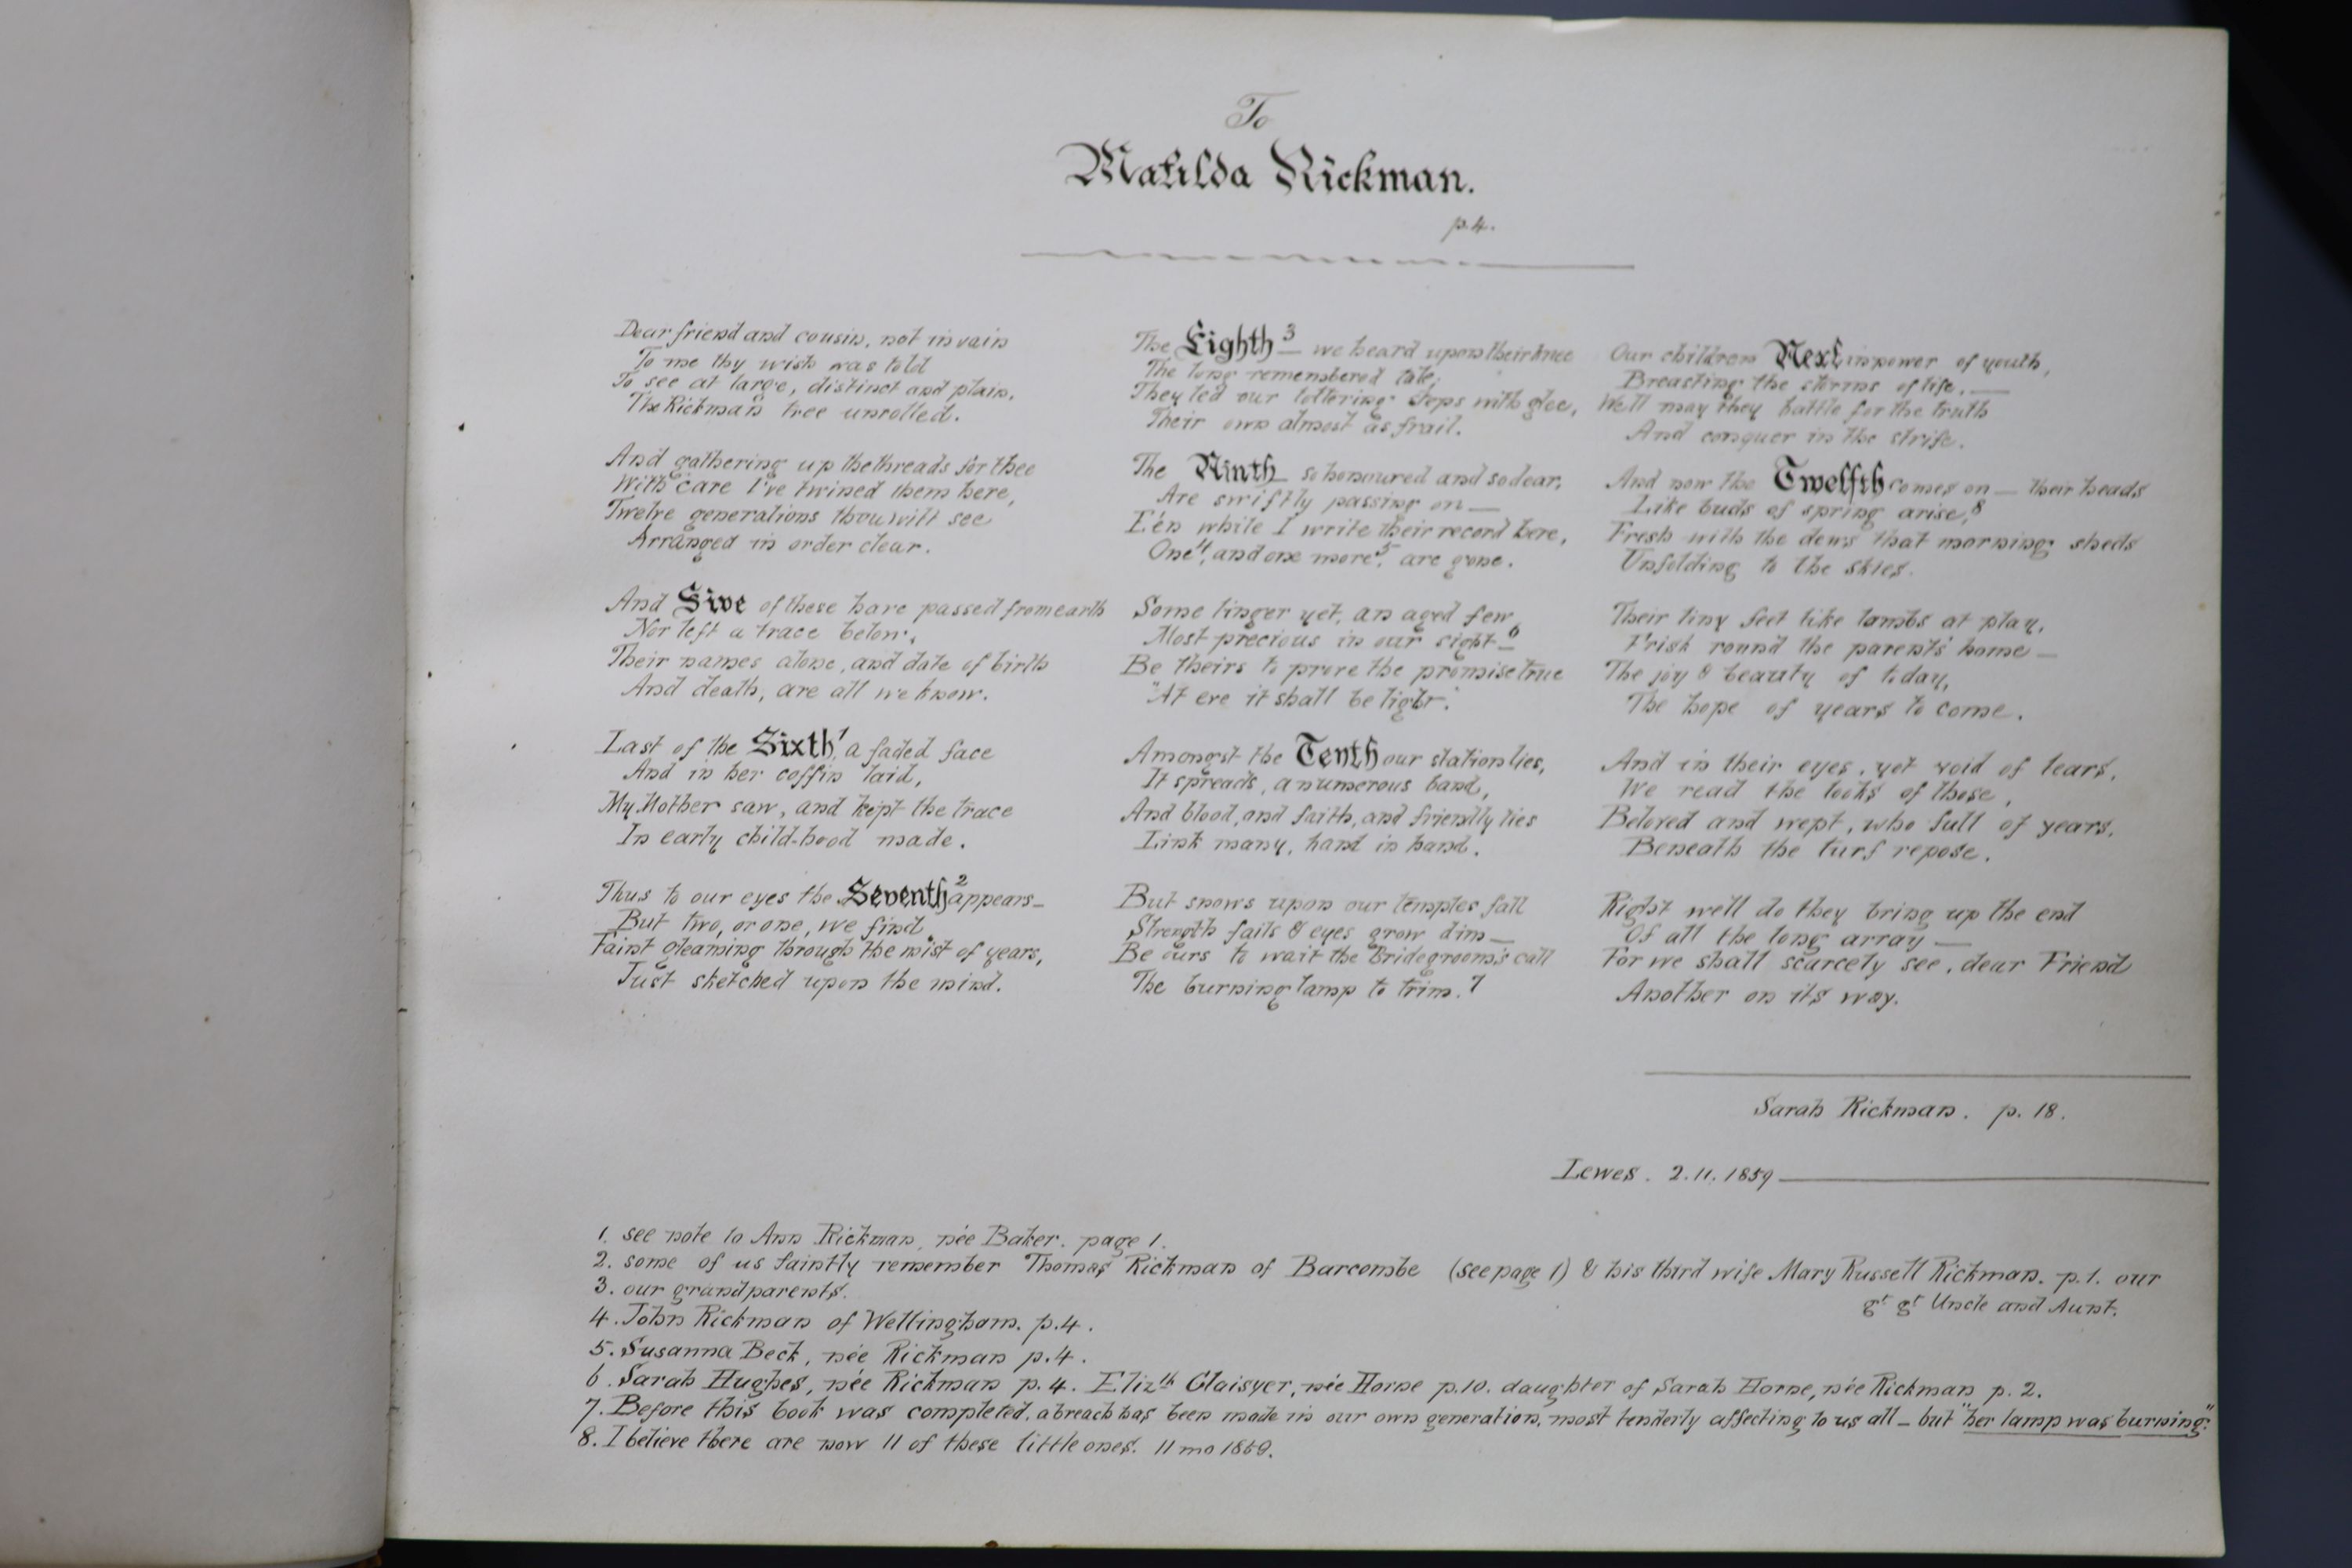 To
Matilda Rickman.
p.4.
Dear friend and cousin, not in vain
To me thy wish was told
To see at large, distinct and plain,
The "Rickman" tree unrolled.
And gathering up the threads for thee
With care I've twined them here,
Twelve generations thou wilt see
Arranged in order clear.
And Five of these have passed from earth
Nor left a trace below,
Their names alone, and date of birth
And death, are all we know.
Last of the Sixth,1 a faded face
And in her coffin laid,
My Mother saw, and kept the trace
In early child-hood made.
Thus to our eyes the Seventh2 appears—
But two, or one, we find
Faint gleaming through the mist of years,
Just sketched upon the mind.
The Eighth3 — we heard upon their knee
The long remembered tale;
They led our tottering steps with glee,
Their own almost as frail.
The Ninth — so honoured and so dear,
Are swiftly passing on —
E'en while I write their record here,
One4, and one more5, are gone.
Some linger yet, an aged few,
Most precious in our sight—6
Be theirs to prove the promise true
"At eve it shall be light".
Amongst the Tenth our station lies,
It spreads, a numerous band,
And blood, and faith, and friendly ties
Link many, hand in hand.
But snows upon our temples fall
Strength fails & eyes grow dim —
Be ours to wait the Bridegroom's call
The burning lamp to trim.7
Our children Next in power of youth,
Breasting the storms of life, —
Well may they battle for the truth
And conquer in the strife.
And now the Twelfth comes on — their heads
Like buds of spring arise,8
Fresh with the dews that morning sheds
Unfolding to the skies.
Their tiny feet like lambs at play,
Frisk round the parents' home —
The joy & beauty of today,
The hope of years to come.
And in their eyes, yet void of tears,
We read the looks of those,
Beloved and wept, who full of years,
Beneath the turf repose.
Right well do they bring up the end
Of all the long array —
For we shall scarcely see, dear Friend
Another on its way.
Sarah Rickman. p. 18.
Lewes. 2.11.1859
1. see note to Ann Rickman, née Baker. page 1.
2. some of us faintly remember Thomas Rickman of Barcombe (see page 1) & his third wife Mary Russell Rickman. p.1. our
gt gt Uncle and Aunt.
3. our grandparents.
4. John Rickman of Wellingham. p.4.
5. Susanna Beck, née Rickman p.4.
6. Sarah Hughes, née Rickman p. 4. Elizth Glaisyer, née Horne p.10. daughter of Sarah Horne, née Rickman p. 2.
7. Before this book was completed, a breach has been made in our own generation, most tenderly affecting to us all — but "her lamp was burning."
8. I believe there are now 11 of these little ones. 11 mo 1859.